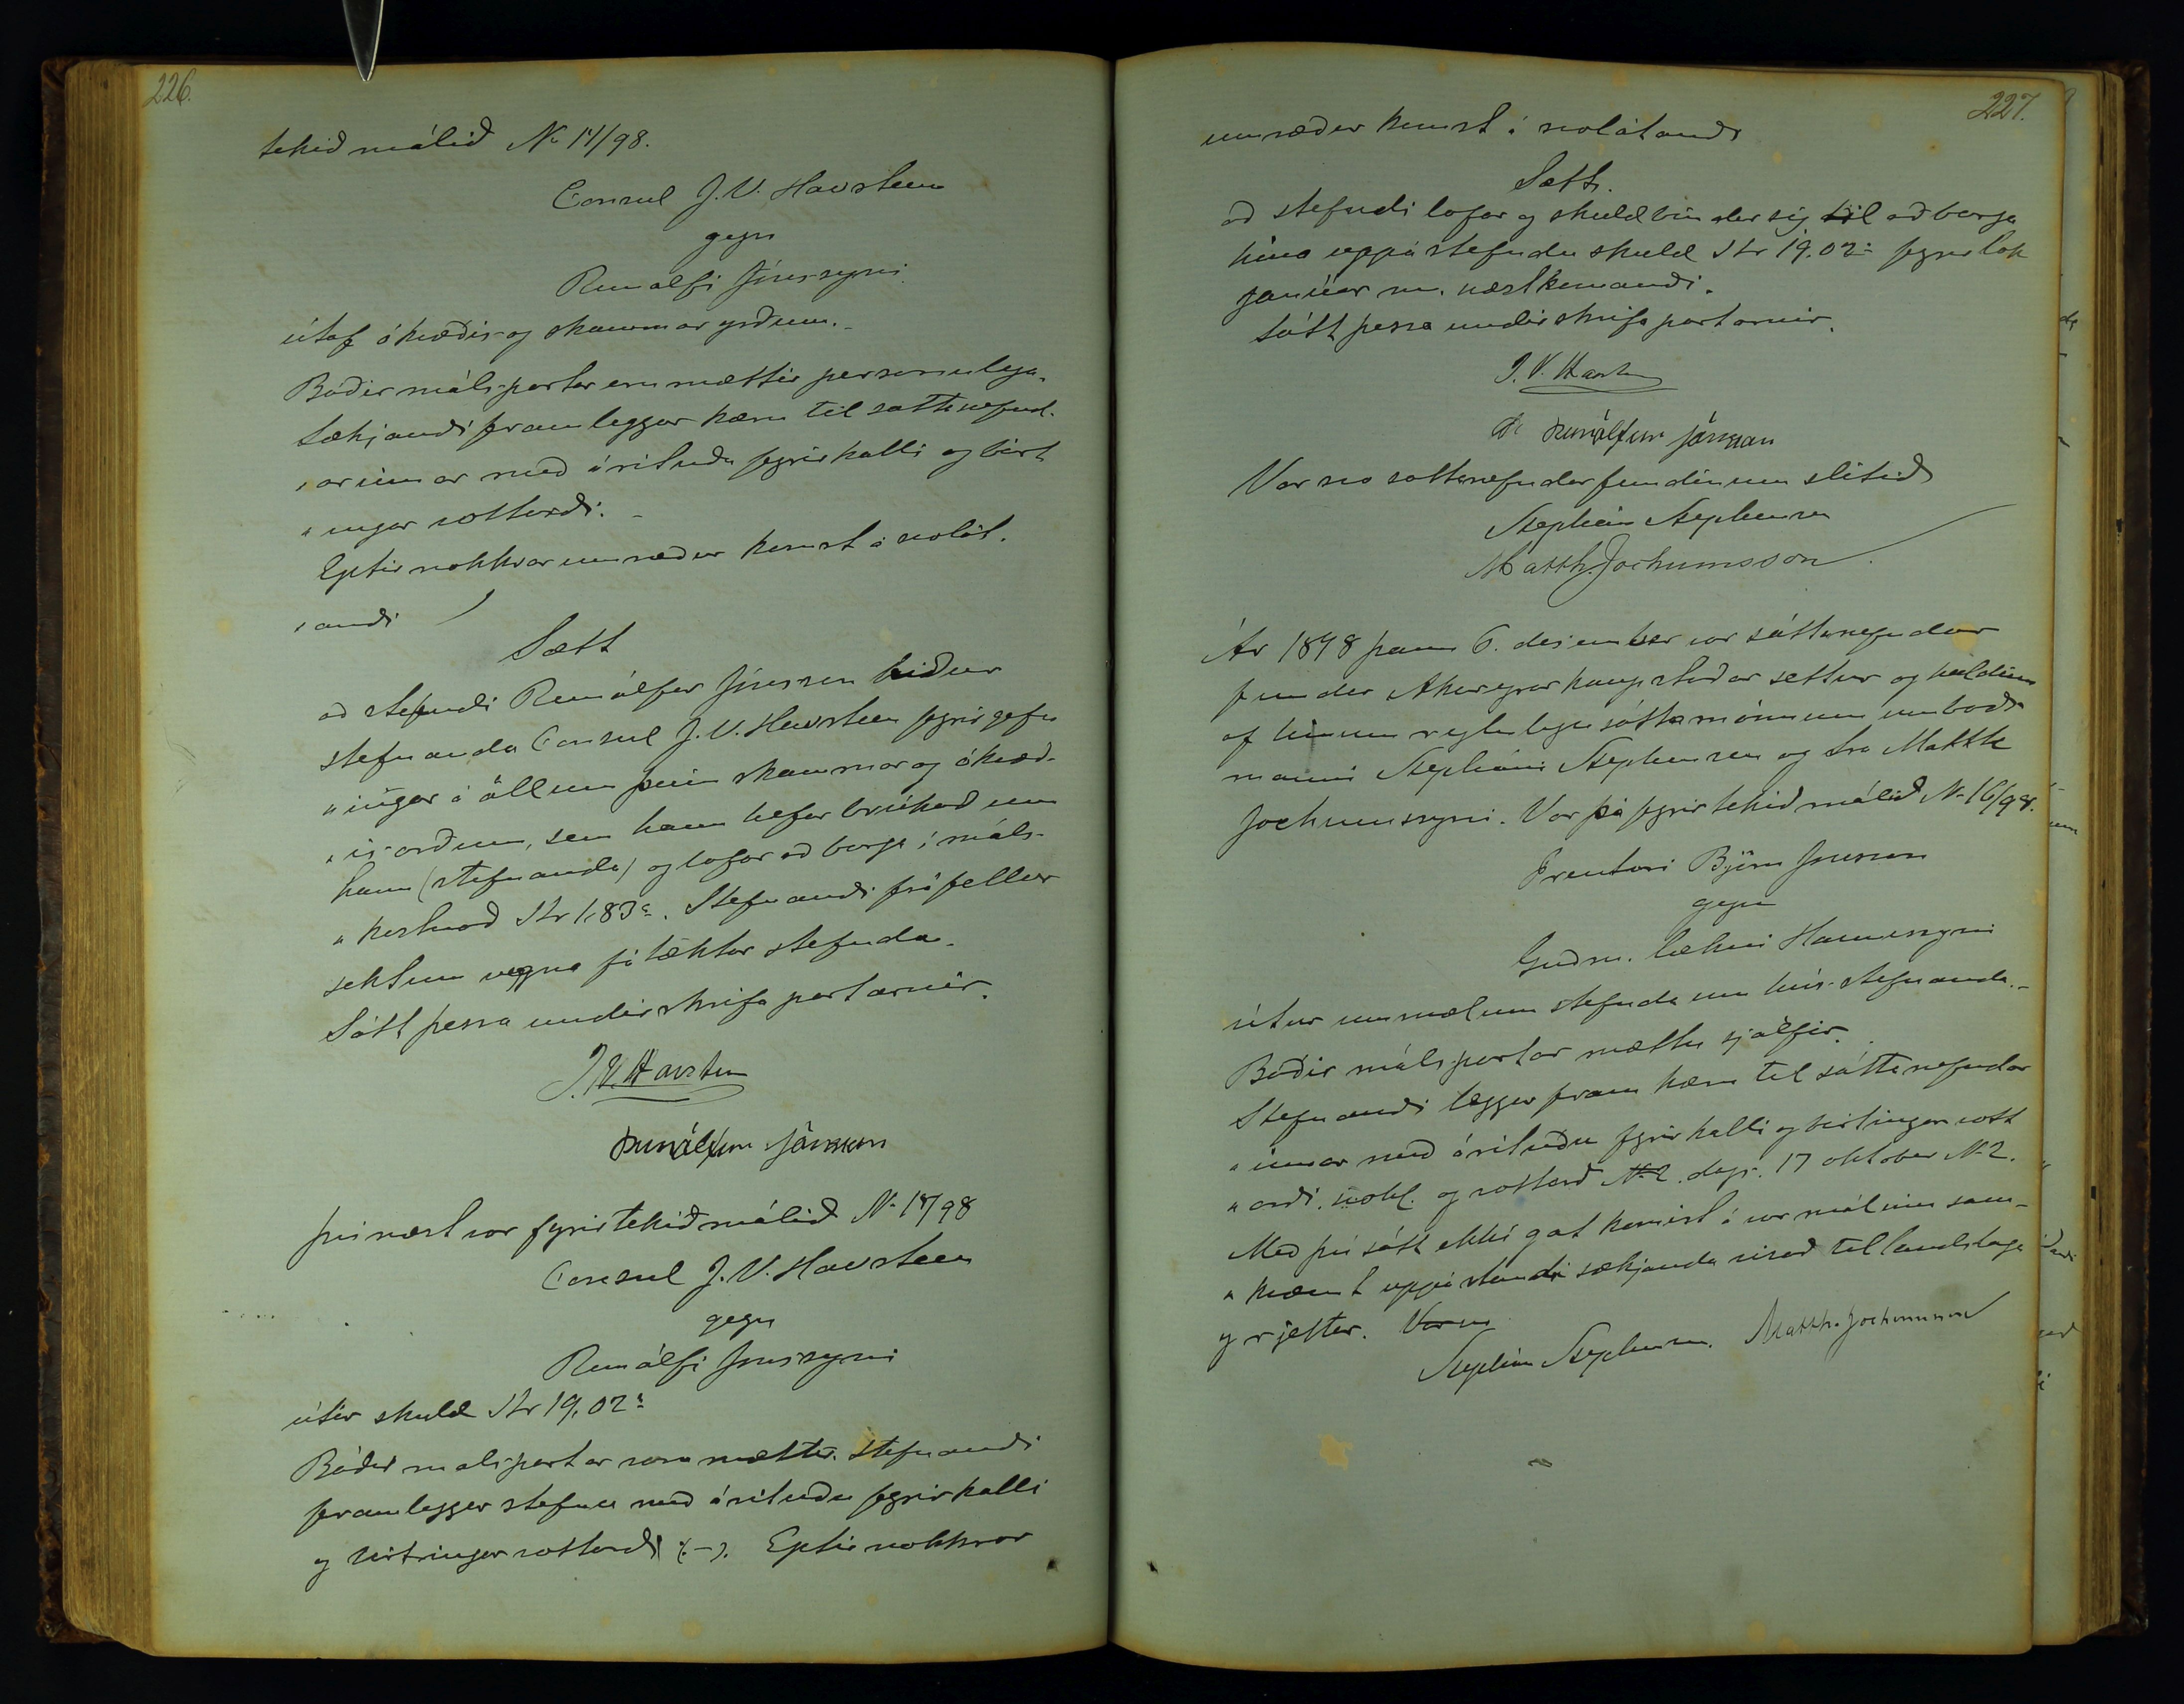 226.
tekið málið No 14/98.
Consul J. V. Havsteen
gegn
Runolfi Jónssyni
útaf ókvæðis- og skammaryrðum.-
Báðir máls-partar eru mættir persónulega.
Sækjandi framleggur kæru til sáttanefnd-
„arinnar með árituðu fyrirkalli og birt
„ingar vottorði. -
Eptir nokkrar umræður komst á svolát.
„andi
Sætt
að stefndi Runólfur Jónsson biður
stefnanda Consul J. V. Havsteen fyrirgefn
„ingar á öllum þeim skammar og ókvæð-
„is-orðum, sem hann hefur brúkað um
hann (stefnanda) og lofar að borga í máls-
„kostnað Kr 1,83 a. Stefnandi fráfellur
sektum vegna fátæktar stefnda.
Sátt þessa undirskrifa partarnir.
J. V. Havsteen
Runólfur Jónsson
því næst var fyrirtekið málið No 17/98
Consul J. V. Havsteen
gegn
Runólfi Jónssyni
útúr skuld Kr 19,02 a
Báðir málspartar voru mættir. Stefnandi
framleggur stefnu með árituðu fyrirkalli
og birtingarvottorði (:-). Eptir nokkrar
227.
umræður komst á svolátandi
Sætt.
að stefndi lofar og skuldbindur sig til að borga
hina uppástefndu skuld Kr 19.02 a fyrir lok
janúar m. næstkomandi.
Sátt þessa undirskrifa partarnir.
J. V. Havsteen
Runólfur Jónsson
Var svo sáttanefndarfundinum slitið
Stephán Stephensen
Matth. Jochumsson
Ár 1898 þann 6. desember var sáttanefndar
fundur Akureyrarkaupstaðar settur og haldinn
af hinum reglulegu sáttamönnum umboðs-
manni Stepháni Stephensen og sra Matth
Jochumssyni. Var þá fyrirtekið málið No 16/98.
Prentari Björn Jónsson
gegn
Guðm. lækni Hannessyni
útúr ummælum stefnda um hús stefnanda.-
Báðir máls-partar mættu sjálfir.
Stefnandi leggur fram kæru til sáttanefndar
„innar með árituðu fyrirkalli og birtingarvott
„orði. og vottorð No 2. dags. 17 oktober No 2.
Með því sátt ekki gat komist á var málinu sam-
„kvæmt uppástandi sækjanda vísað til landslaga
og rjettar. Var sv
Stephán Stephensen. Matth. Jochumsson